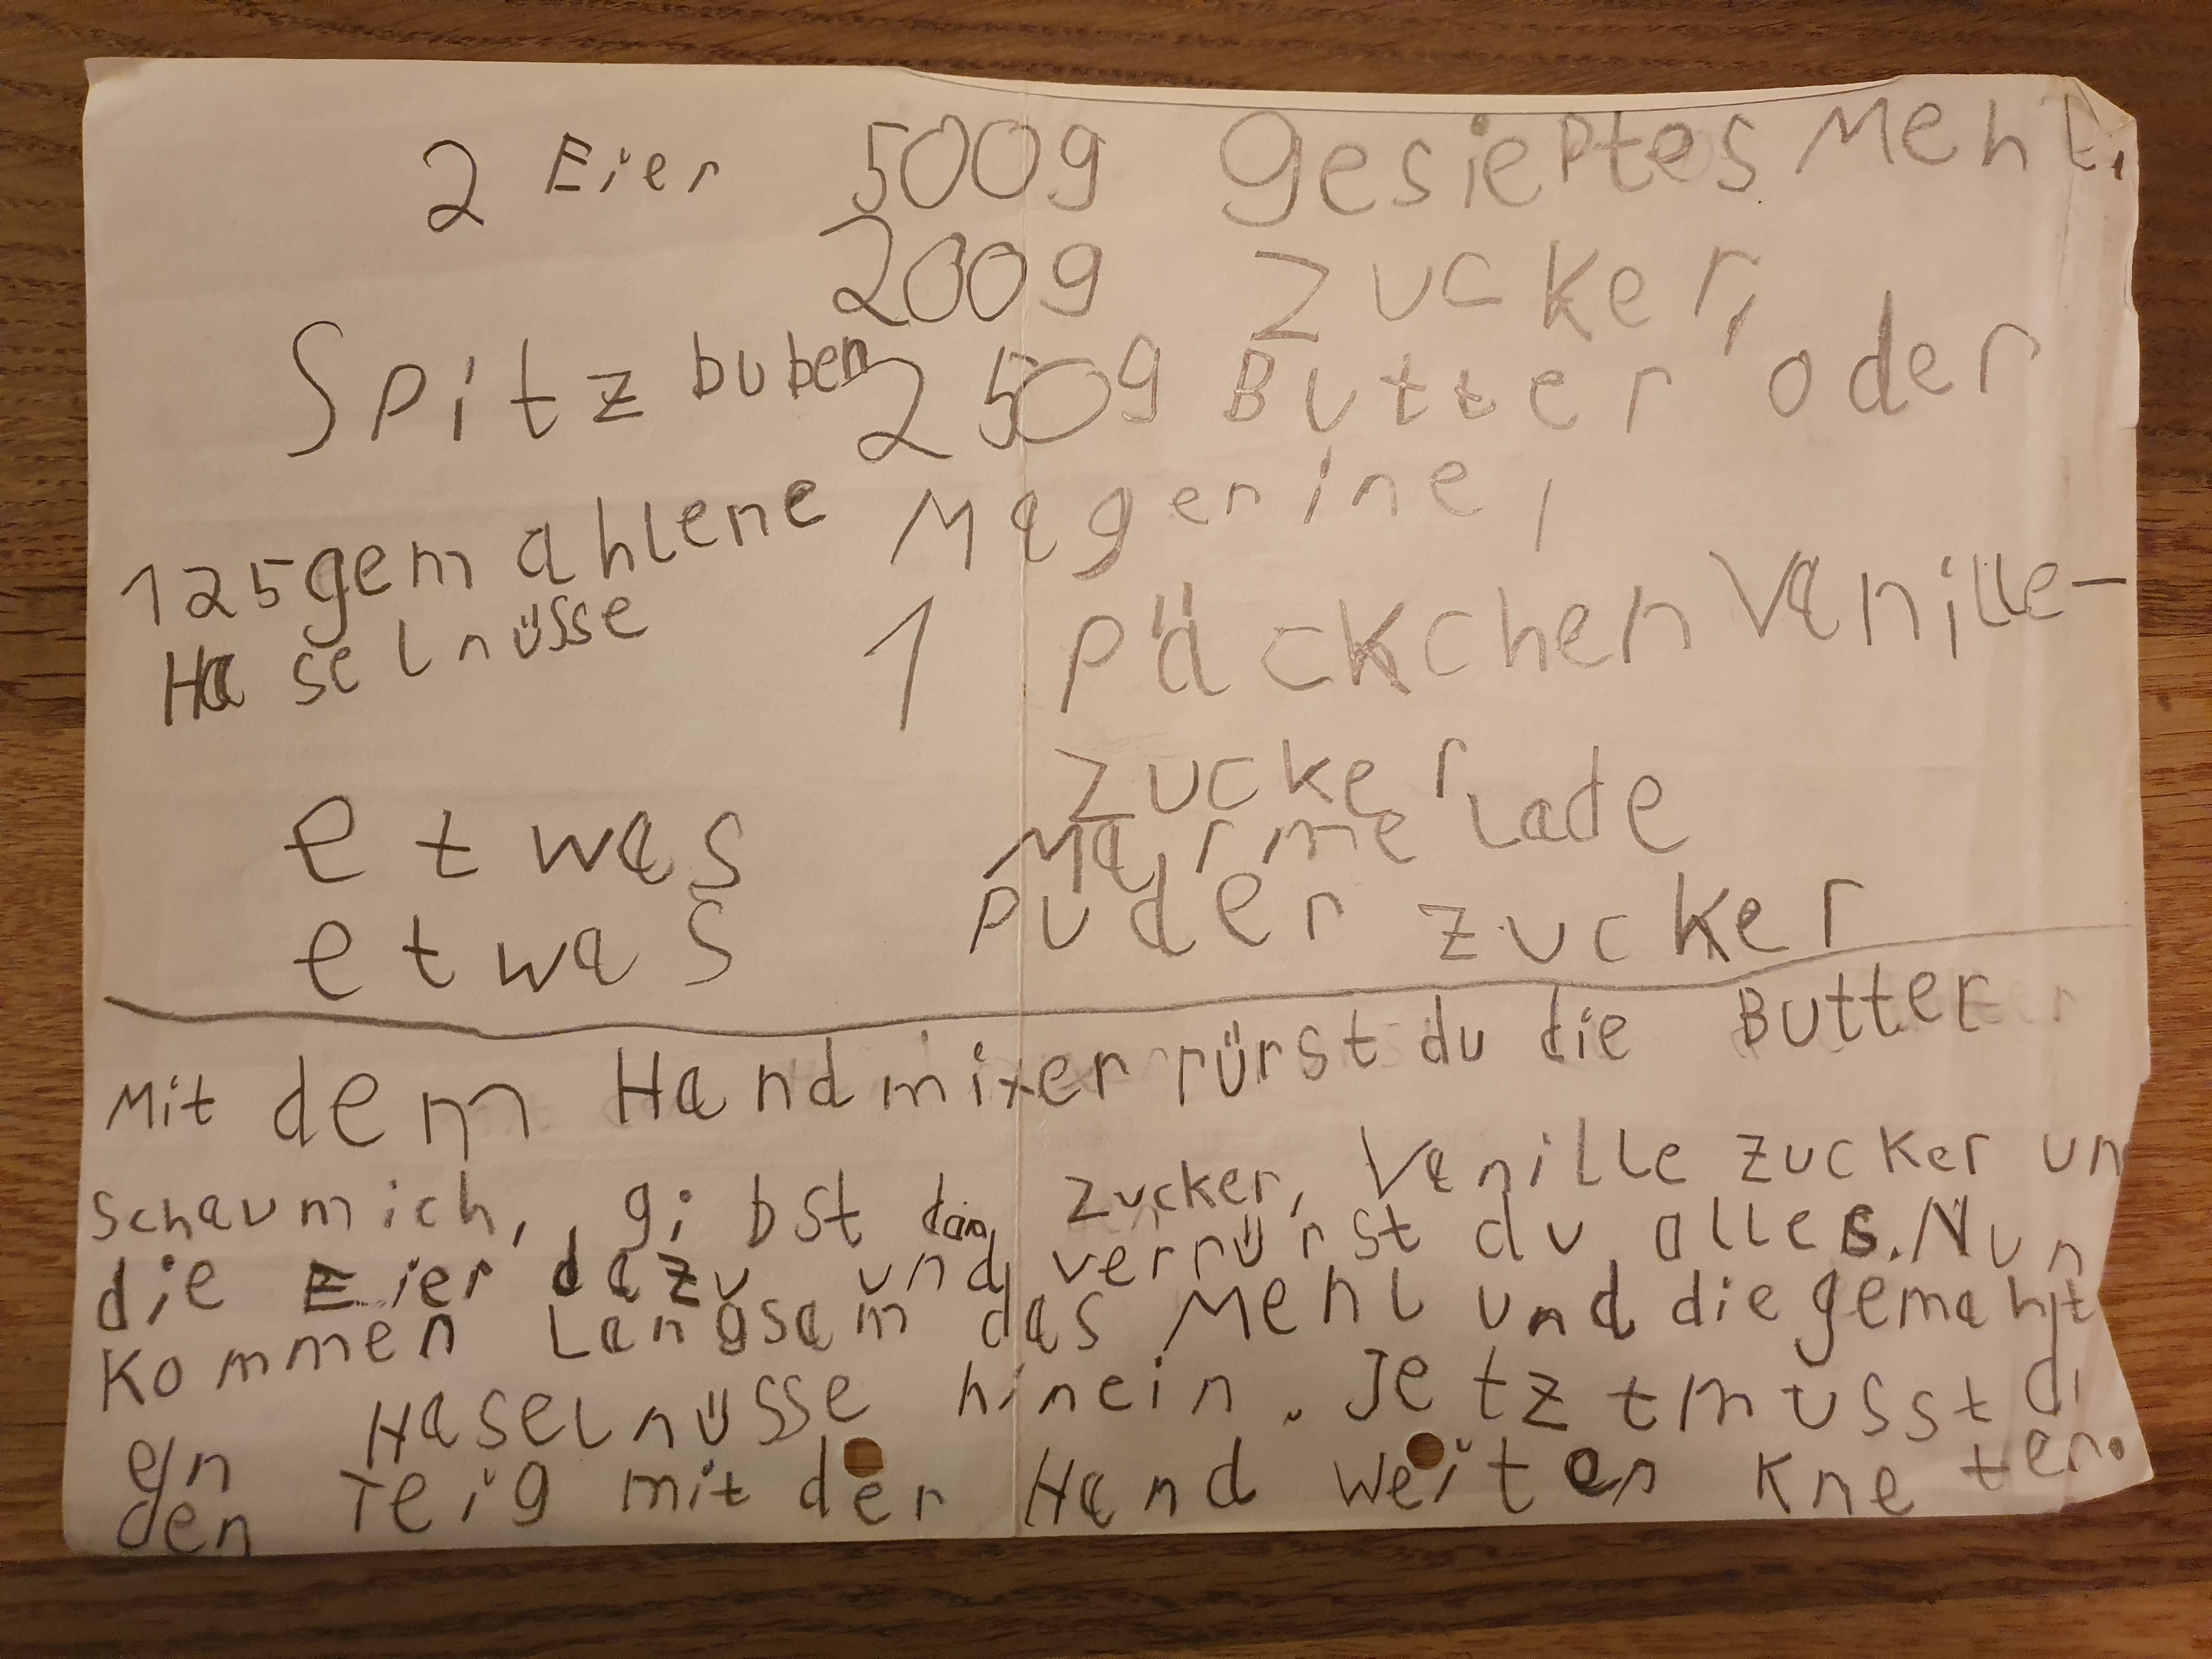 2 Eier 500g gesieptes Mehl,
200g Zucker,
Spitzbuben 250g Butter oder
125gemahlene Magerine,
Haselnüsse 1 Päckchen Vanille-
Zucker
etwas Marmelade
etwas Puderzucker
Mit dem Handmixer rürst du die Butter
schaumich, gibst dan Zucker, Vanille zucker un
die Eier dazu und verrürst du alles. Nun
kommen Langsam das Mehl und die gemahlt
en Haselnüsse hinein. Jetzt musst du
den Teig mit der Hand weiter kneten.